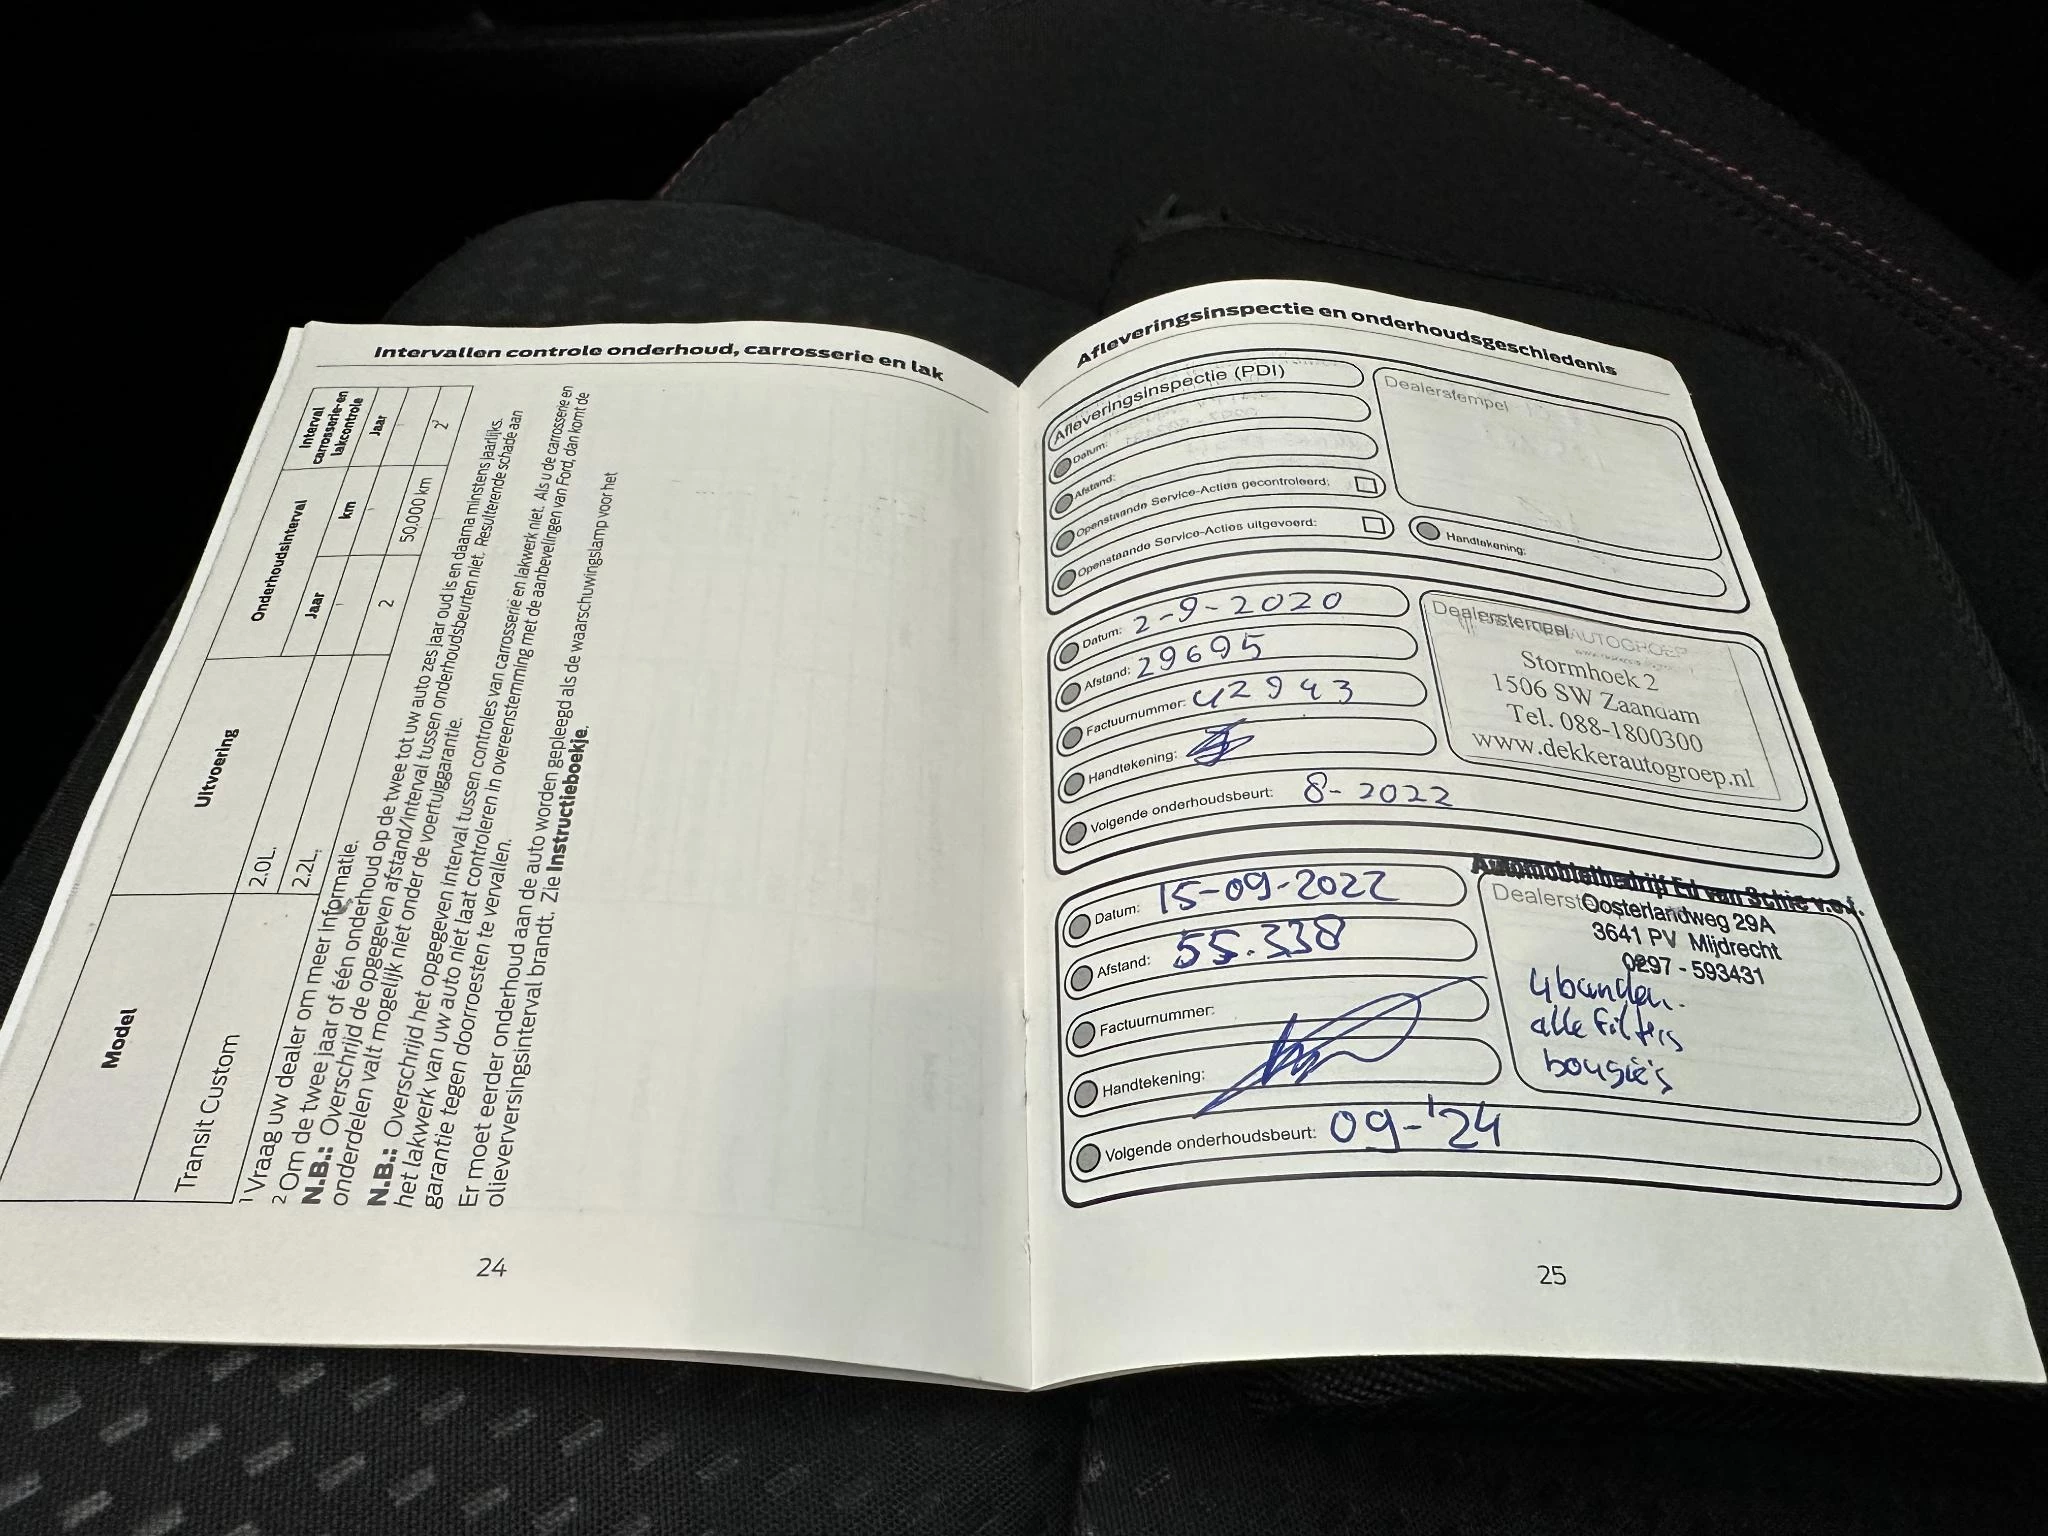 Intervallen controle onderhoud, carrosserie en lak
Model
Uitvoering
Onderhoudsinterval
Interval carrosserie-en lakcontrole
Jaar
km
Jaar
Transit Custom
2.0L.
2.2L.
2
50.000 km
2
1 Vraag uw dealer om meer informatie.
2 Om de twee jaar of één onderhoud op de twee tot uw auto zes jaar oud is en daarna minstens jaarlijks.
N.B.: Overschrijd de opgegeven afstand/interval tussen onderhoudsbeurten niet. Resulterende schade aan
onderdelen valt mogelijk niet onder de voertuiggarantie.
N.B.: Overschrijd het opgegeven interval tussen controles van carrosserie en lakwerk niet. Als u de carrosserie en
het lakwerk van uw auto niet laat controleren in overeenstemming met de aanbevelingen van Ford, dan komt de
garantie tegen doorroesten te vervallen.
Er moet eerder onderhoud aan de auto worden gepleegd als de waarschuwingslamp voor het
olieverversingsinterval brandt. Zie Instructieboekje.
24
Afleveringsinspectie en onderhoudsgeschiedenis
Afleveringsinspectie (PDI)
Datum:
Afstand:
Openstaande Service-Acties gecontroleerd:
Openstaande Service-Acties uitgevoerd:
Dealerstempel
Handtekening:
Datum: 2-9-2020
Afstand: 29695
Factuurnummer: 42943
Handtekening:
Volgende onderhoudsbeurt: 8-2022
Dealerstempel
AUTOGROEP
Stormhoek 2
1506 SW Zaandam
Tel. 088-1800300
www.dekkerautogroep.nl
Datum: 15-09-2022
Afstand: 55.338
Factuurnummer:
Handtekening:
Volgende onderhoudsbeurt: 09-'24
Automobielbedrijf Ed van Schie v.o.f.
Oosterlandweg 29A
3641 PV Mijdrecht
0297-593431
4 banden.
alle filters
bougie's
25